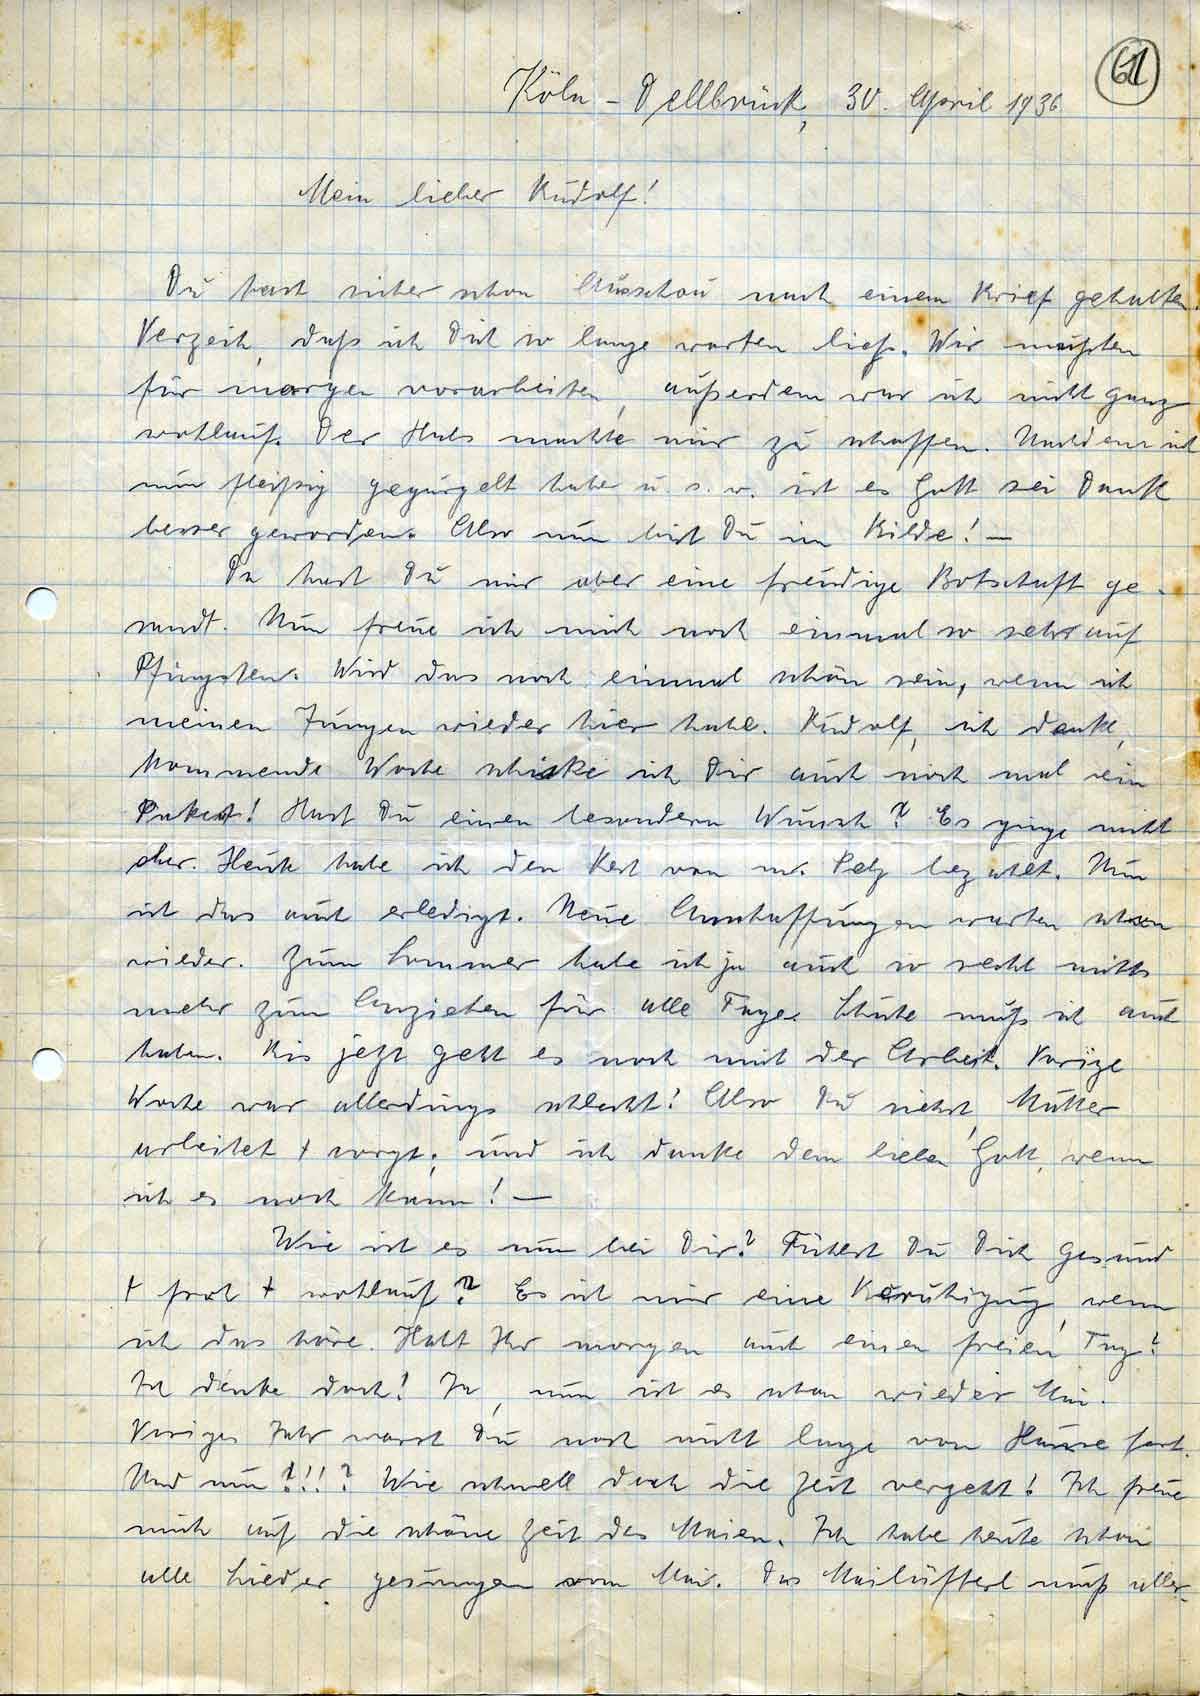 61
Köln-Dellbrück, 30. April 1936
Mein lieber Rudolf!
Du hast sicher schon Ausschau nach einem Brief gehalten.
Verzeih, daß ich Dich so lange warten ließ. Wir mußten
für morgen vorarbeiten, außerdem war ich nicht ganz
wohlauf. Der Hals machte mir zu schaffen. Nachdem ich
nun fleißig gegurgelt habe u. s. w. ist es Gott sei Dank
besser geworden. Also nun bist Du im Bilde! —
Da hast Du mir aber eine freudige Botschaft ge-
sandt. Nun freue ich mich noch einmal so sehr auf
Pfingsten. Wird das noch einmal schön sein, wenn ich
meinen Jungen wieder hier habe. Rudolf, ich denke,
kommende Woche schicke ich Dir auch noch mal ein
Paket! Hast Du einen besondern Wunsch? Es ginge nicht
eher. Heute habe ich den Rest von m. Pelz bezahlt. Nun
ist das auch erledigt. Neue Anschaffungen warten schon
wieder. Zum Sommer habe ich ja auch so recht nichts
mehr zum Anziehen für alle Tage. Schuhe muß ich auch
haben. Bis jetzt geht es noch mit der Arbeit. Vorige
Woche war allerdings schlecht! Also Du siehst, Mutter
arbeitet + sorgt, und ich danke dem lieben Gott, wenn
ich es noch kann! —
Wie ist es nun bei Dir? Fühlst Du Dich gesund
+ froh + wohlauf? Es ist mir eine Beruhigung, wenn
ich das höre. Habt Ihr morgen auch einen freien Tag?
Ich denke doch! Ja, nun ist es schon wieder Mai.
Voriges Jahr warst Du noch nicht lange von Hause fort.
Und nun?!!? Wie schnell doch die Zeit vergeht! Ich freue
mich auf die schöne Zeit des Maien. Ich habe heute schon
alle Lieder gesungen vom Mai. Das Mailüfterl muß aller-